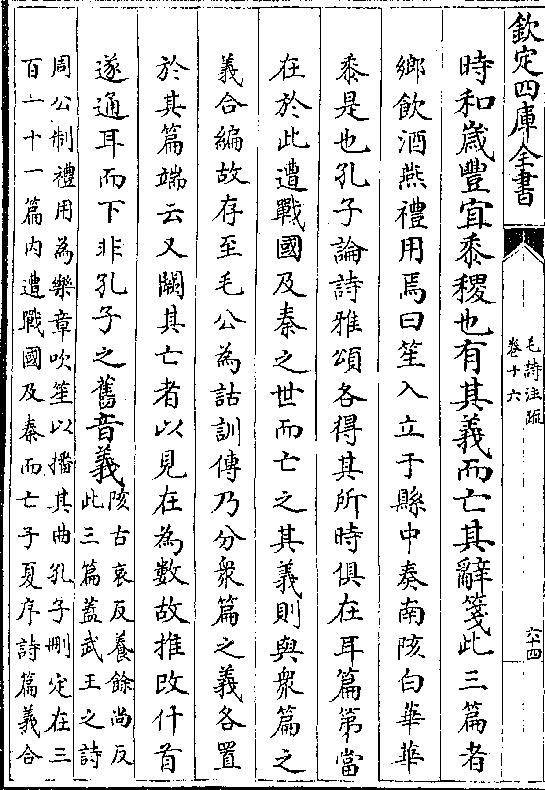 欽定四庫全書
毛詩注疏
卷十六
六十四
時和歲豐宜黍稷也有其義而亡其辭箋此三篇者
鄉飲酒燕禮用焉曰笙入立于縣中奏南陔白華華
黍是也孔子論詩雅頌各得其所時俱在耳篇第當
在於此遭戰國及秦之世而亡之其義則與衆篇之
義合編故存至毛公為詁訓傳乃分衆篇之義各置
於其篇端云又闕其亡者以見在為數故推改什首
遂通耳而下非孔子之舊音義陔古哀反養餘尚反
此三篇蓋武王之詩
周公制禮用為樂章吹笙以播其曲孔子刪定在三
百一十一篇內遭戰國及秦而亡子夏序詩篇義合